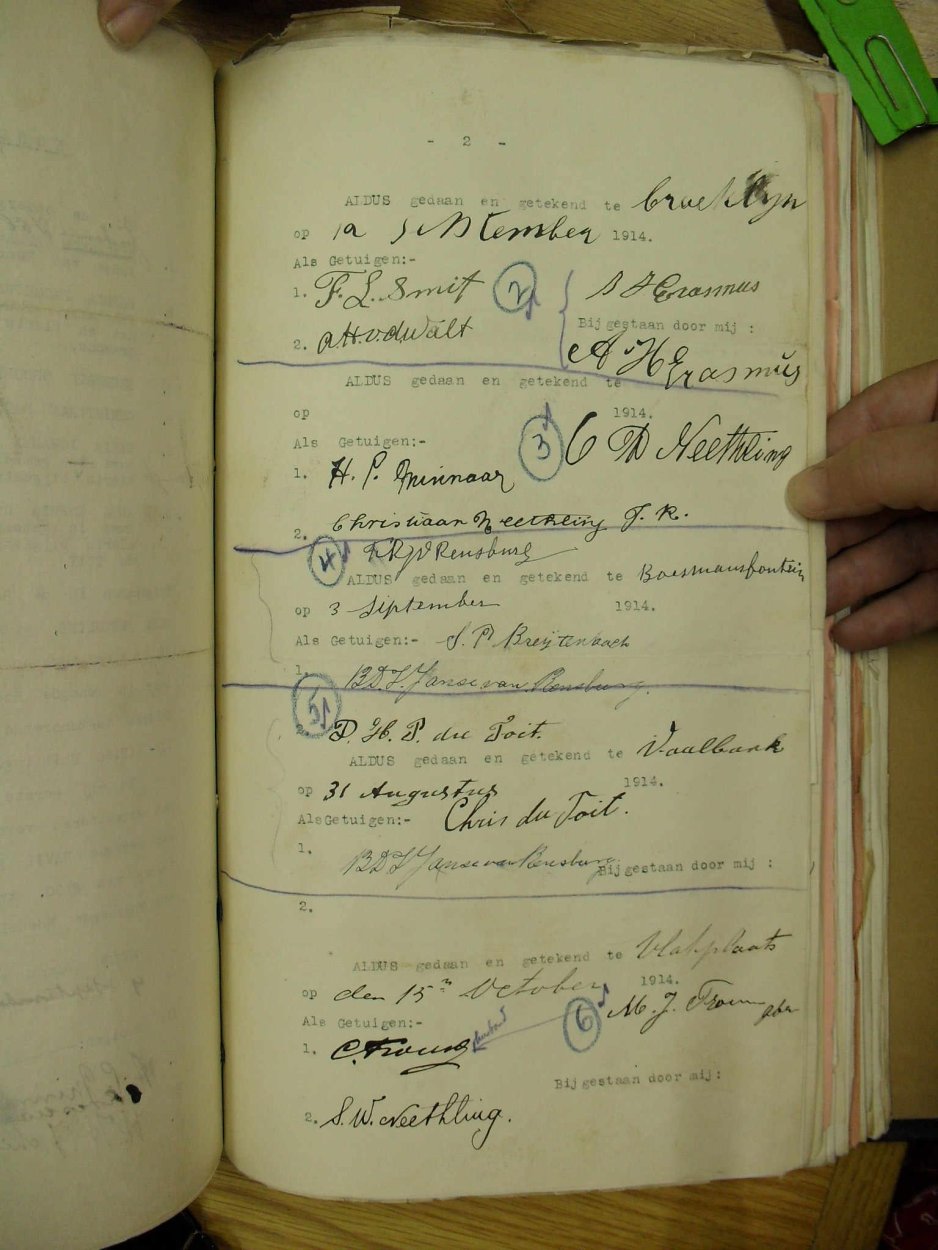 - 2 -
ALDUS gedaan en getekend te
op 12 September 1914.
Als Getuigen:-
1. F. L. Smit 2 Erasmus
Bijgestaan door mij :
2. A.H.v.d.Walt A H Erasmus
ALDUS gedaan en getekend te
op 1914.
Als Getuigen:-
3 Neethling
1. H. P. Minnaar
2. Christiaan Neethling J. R.
4 Rensburg
ALDUS gedaan en getekend te Boesmansfontein
op 3 September 1914.
Als Getuigen:- S. P. Breijtenbach
1. B D J Janse van Rensburg.
5
2. D. H. P. du Toit.
ALDUS gedaan en getekend te Vaalbank
op 31 Augustus 1914.
AlsGetuigen:- Chris du Toit.
1. B D J Janse van Rensburg Bijgestaan door mij :
2.
ALDUS gedaan en getekend te Vlakplaats
op den 15n October 1914.
Als Getuigen:- 6 M. J.
1. C.
Bijgestaan door mij:
2. S. W. Neethling.